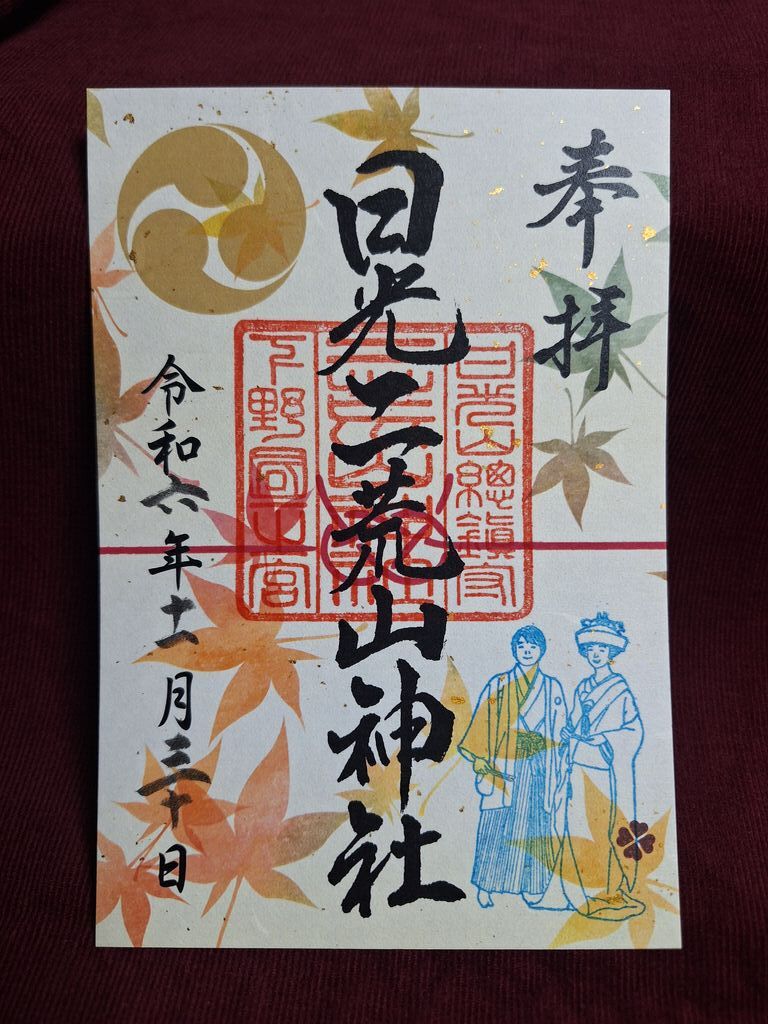 奉拝
日光山總鎮守
日光二荒山神社
下野國一之宮
令和六年十一月三十日